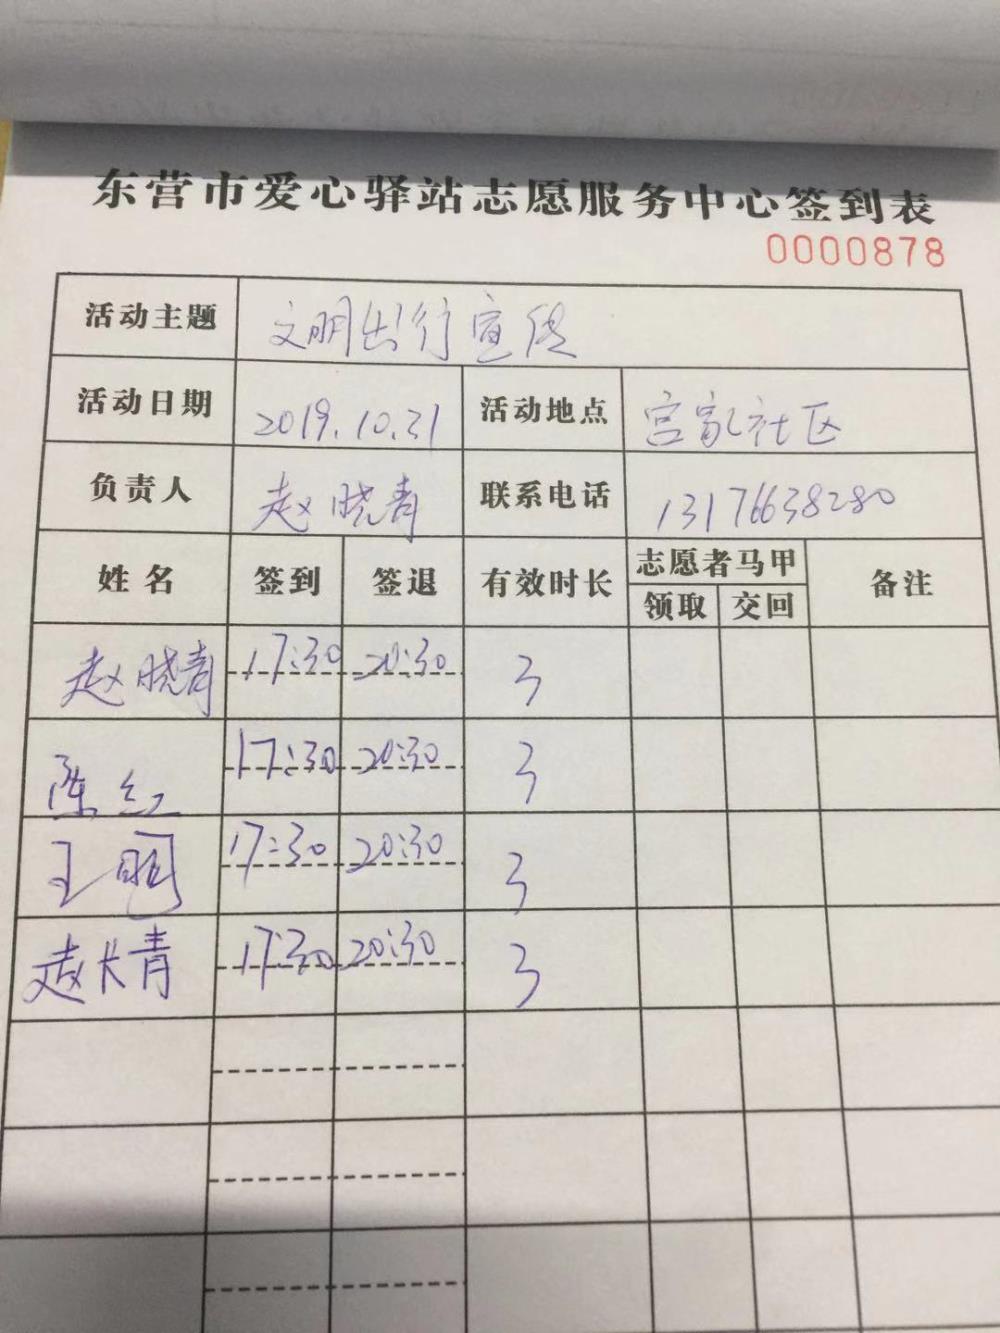 东营市爱心驿站志愿服务中心签到表
0000878
活动主题 文明出行宣传
活动日期 2019.10.31 活动地点 宫家社区
负责人 赵晓青 联系电话 13176638280
姓名 签到 签退 有效时长 志愿者马甲 备注
领取 交回
赵晓青 17:30 20:30 3
陈红 17:30 20:30 3
王明 17:30 20:30 3
赵长青 17:30 20:30 3